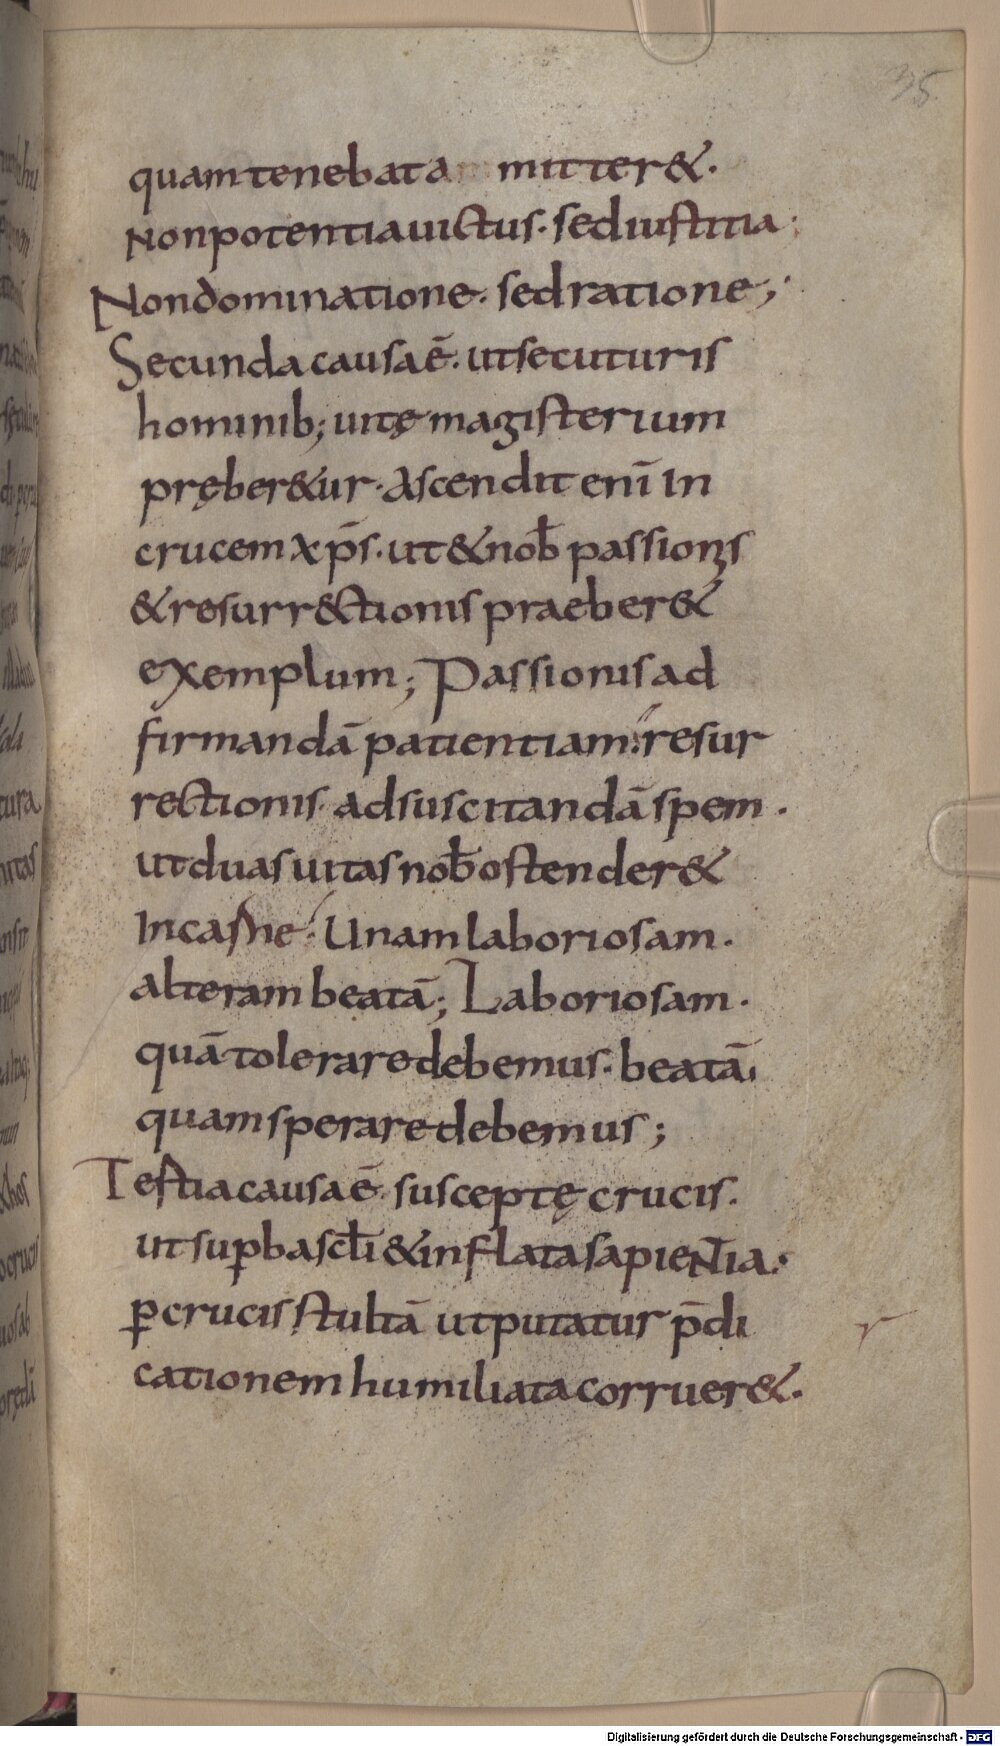 35
quam tenebat a mitter&.
Non potentia uictus. sed iustitia;
Non dominatione. sed ratione;
Secunda causa ē. ut secuturis
hominib; uitę magisterium
pręber&ur. Ascendit enī in
crucem xp̄s. ut & nob̄ passionis
& resurr&ctionis praeber&
exemplum; Passionis ad
firmandā patientiam: resur
rectionis. ad suscitandā spem.
ut duas uitas nob̄ ostender&
In carne. Unam laboriosam.
alteram beatā; Laboriosam.
quā tolerare debemus. beatā.
quam sperare debemus;
Tertia causa ē. susceptę crucis.
ut suꝑba scl̄i & inflata sapientia.
ꝑ crucis stultā ut putatur p̄di
cationem humiliata corruer&.
r
Digitalisierung gefördert durch die Deutsche Forschungsgemeinschaft - DFG